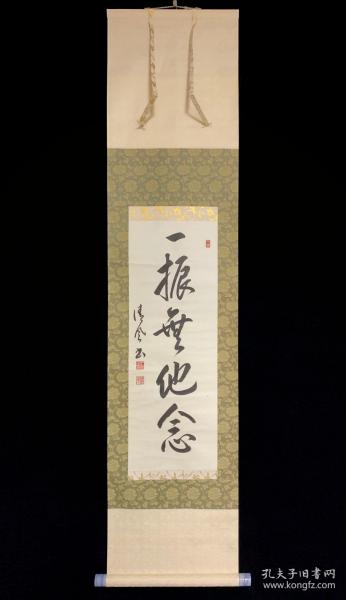 一振無他念
清風书
孔夫子旧书网
www.kongfz.com